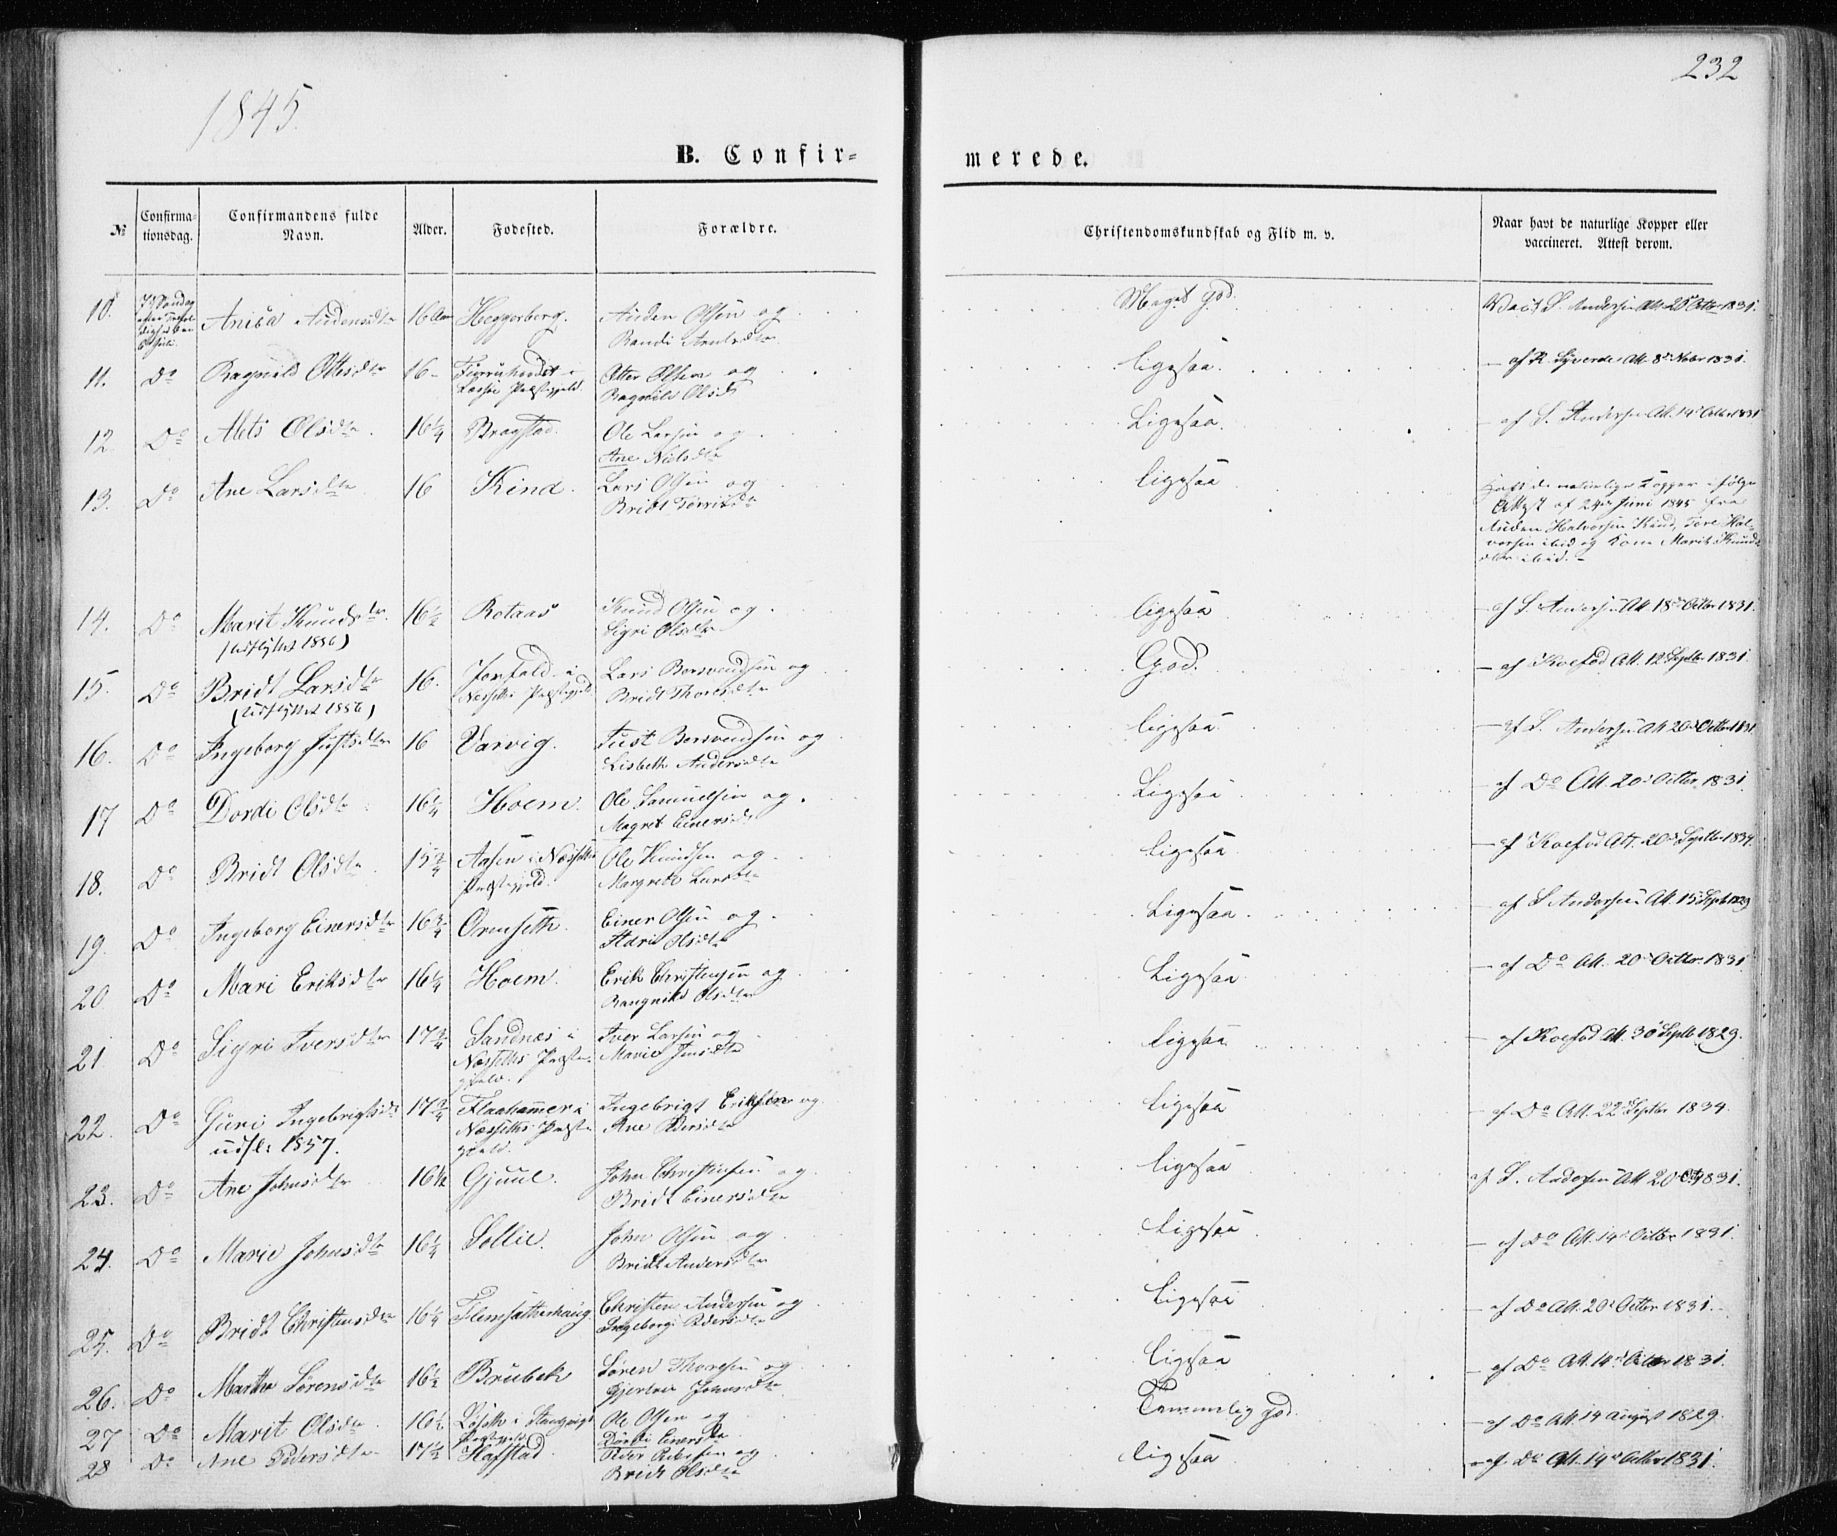 232
1845.
B. Confir-
merede.
№ Confirma-tionsdag. Confirmandens fulde Navn. Alder. Fødested. Forældre. Christendomskundskab og Flid m. v. Naar havt de naturlige Kopper eller vaccineret. Attest derom.
10. 7de Søndag efter 6 Juli Audensdtr 16 Heggerberg. Auden Olsen og Meget god. Vacc. S. Andersen Att. 25 Octbr 1831.
Randi
11. Do Ragnild Ottesdtr 16 i Otter Olsen og Ligesaa. – af R. Att. 8de Novbr 1831.
Præstegjeld. Ragnild Olsdtr
12. Do Mets Olsdtr 16¼ Bragstad. Ole Larsen og Ligesaa. – af S. Andersen Att. 14de Octbr 1831
Ane Nielsdtr
13. Do Ane Larsdtr 16 Kind. Lars Olsen og Ligesaa Havt de naturlige Kopper ifølge
Bridt Attest af 24de Juni 1845 fra
Auden Halvorsen Kind, Tore Hal-
vorsen ibid og Kone Marit Knuds-
dtr ibid. –
14. Do Marit Knudsdtr. 16½ Rotaas Knud Olsen og Ligesaa – af S. Andersen Att 18de Octbr 1831.
(udflyttet 1856) Sigri Olsdtr
15. Do Bridt Larsdtr 16. i Lars Bersvendsen og God. – af Koefod Att. 12 Septbr 1831.
(udflyttet 1856) Nessets Præstegjeld Bridt Thoresdtr
16. Do Ingeborg Justsdtr 16 Varvig. Just Bersvendsen og Ligesaa – af S. Andersen Att 20de Octbr 1831
Lisbeth Andersdtr
17 Do Dordi Olsdtr 16¼ Hoem. Ole Samuelsen og. Ligesaa – af Do Att. 20de Octbr 1831.
Magret Einersdtr
18. Do Bridt Olsdtr 15¾ Aasen i Nessets Ole Knudsen og Ligesaa – af Koefod Att. 20de Septbr 1834.
Præstegjeld. Margrete Larsdtr
19. Do Ingeborg Einersdtr 16¾ Ormseth. Einer Olsen og Ligesaa – af S Andersen Att. 15 Septb 1829
Olsdtr
20 Do Mari Eriksdtr 16¼ Hoem. Erik Christensen og Ligesaa – af Do Att. 20de Octbr. 1831
Rangnild Olsdtr
21. Do Sigri Iversdtr 17¾ Sandnes i Iver Larsen og Ligesaa – af Koefod Att. 30 Septb 1829.
Nessets Præste- Marie
gjeld.
22. Do Guri Ingebrigtsdtr 17¾ Flaahammer i Ingebrigt Eriksen og Ligesaa – af Do Att. 22 Septbr 1834.
udfl: 1857. Nessets Præste- Ane Pedersdtr
gjeld.
23. Do Ane Johnsdtr 16½ Gjuul. John Christensen og Ligesaa af S. Andersen Att 20 Oct 1831.
Bridt Einersdtr
24. Do Marie Johnsdtr 16¼ Sollie. John Olsen og Ligesaa – af Do Att. 14de Octbr 1831.
Bridt Andersdtr
25. Do Bridt Christensdtr 16¼ Flemsætherhaug. Christen Andersen og Ligesaa – af Do Att. 20de Octbr 1831.
Ingeborg Pedersdtr
26. Do Martha Sørensdtr 16½ Brubek Søren Thoresen og Ligesaa – af Do Att. 14de Octbr 1831.
Gjertru Johnsdtr
27 Do Marit Olsdtr 16½ i Ole Olsen og Temmelig god. – af Do Att. 14 August 1829.
Præstegjeld Dordi Einersdtr
28 Do Ane Pedersdtr 17½ Hafstad. Peder Pedersen og Ligesaa – af Do Att. 14de Octbr 1831.
Bridt Olsdtr